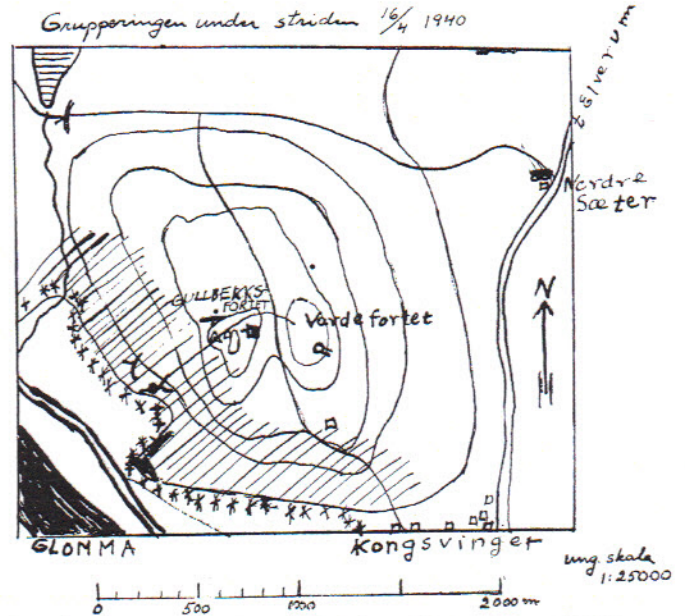 Grupperingen under striden 16/4 1940
t Elverum
Nordre
Sæter
GULLBEKKS-
FORTET
Vardefortet
N
GLOMMA
Kongsvinger
ung. skala
1:25000
0 500 1000 2000 m